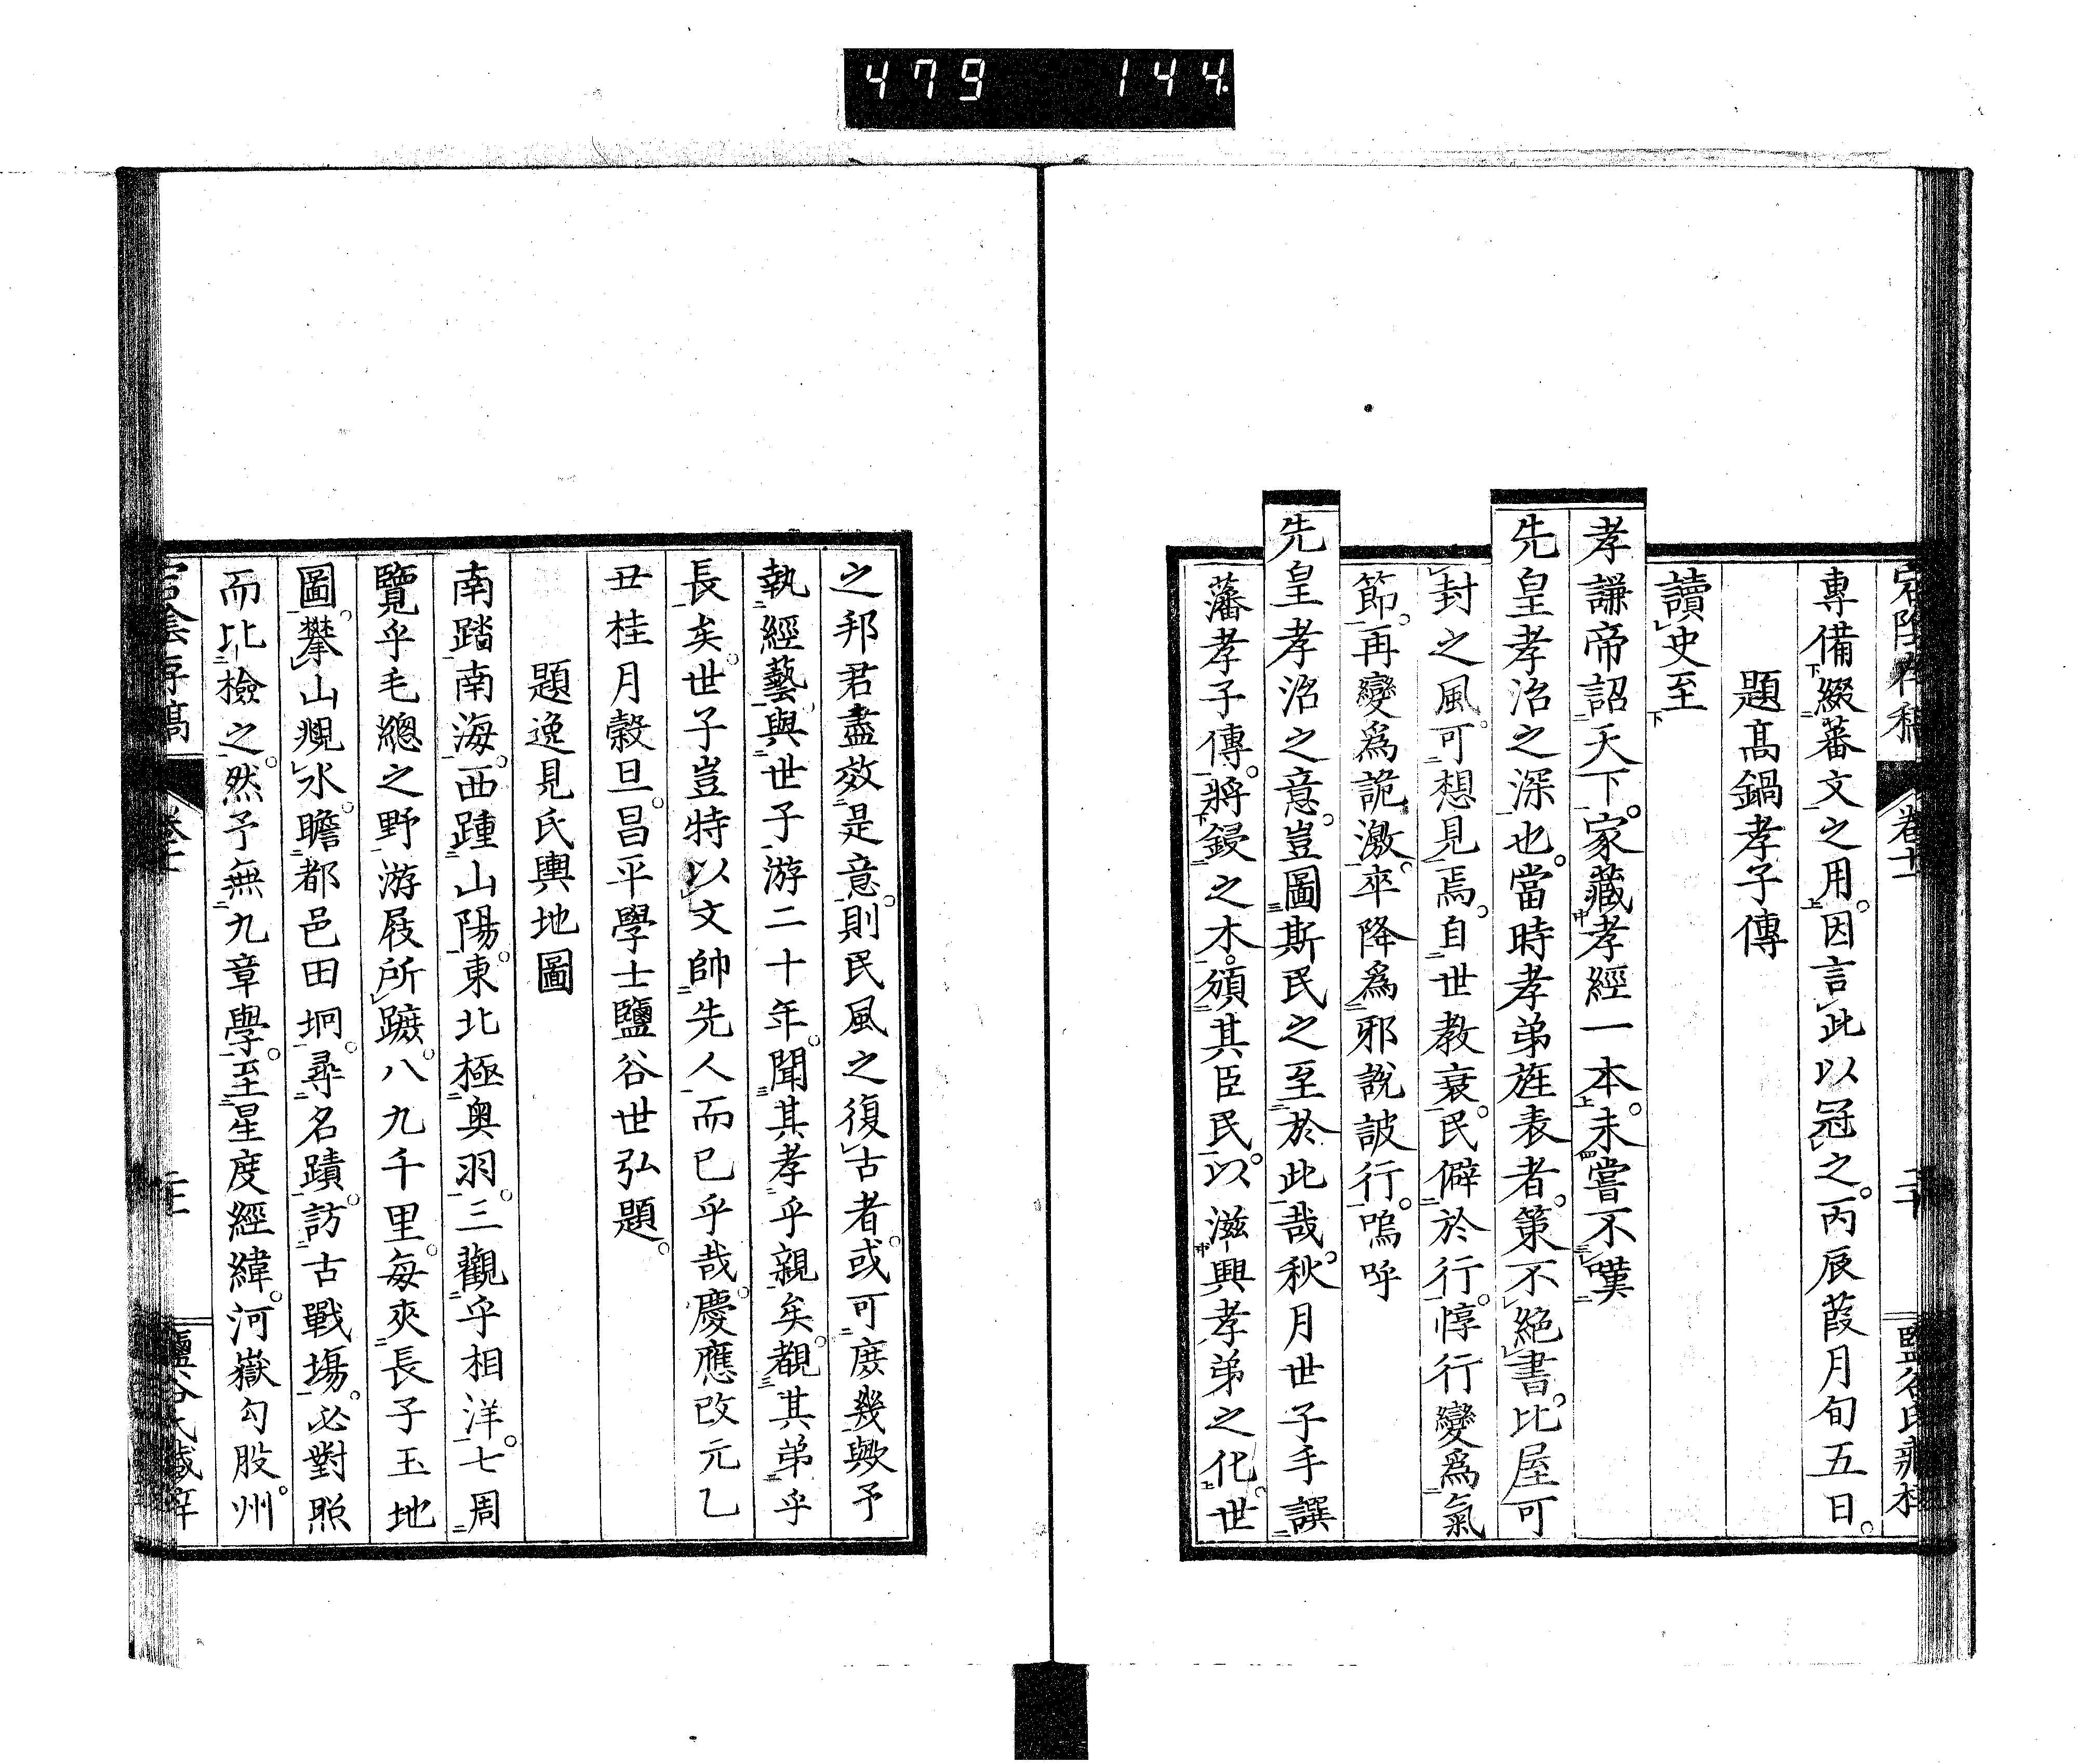 479 144.
宕陰存稿 卷十一 二十 鹽谷氏藏梓
專備綴蕃文之用。因言此以冠之。丙辰葭月旬五日。
題高鍋孝子傳
讀史至
孝謙帝詔天下。家藏孝經一本。未嘗不嘆
先皇孝治之深也。當時孝弟旌表者。策不絕書。比屋可
封之風。可想見焉。自世教衰。民僻於行。惇行變爲氣
節。再變爲詭激。卒降爲邪說詖行。嗚呼
先皇孝治之意。豈圖斯民之至於此哉。秋月世子手譔
藩孝子傳。將鋟之木。頒其臣民。以滋興孝弟之化。世
之邦君盡效是意。則民風之復古者。或可庶幾歟予
執經藝與世子游二十年。聞其孝乎親矣。覩其弟乎
長矣。世子豈特以文帥先人而已乎哉。慶應改元乙
丑桂月穀旦。昌平學士鹽谷世弘題。
題逸見氏輿地圖
南踏南海。西踵山陽。東北極奧羽。三觀乎相洋。七周
覽乎毛總之野。游屐所蹠。八九千里。每夾長子玉地
圖。攀山覜水。瞻都邑田坰。尋名蹟。訪古戰場。必對照
而比檢之。然予無九章學。至星度經緯。河嶽勾股。州
宕陰存稿 卷十一 鹽谷氏藏梓